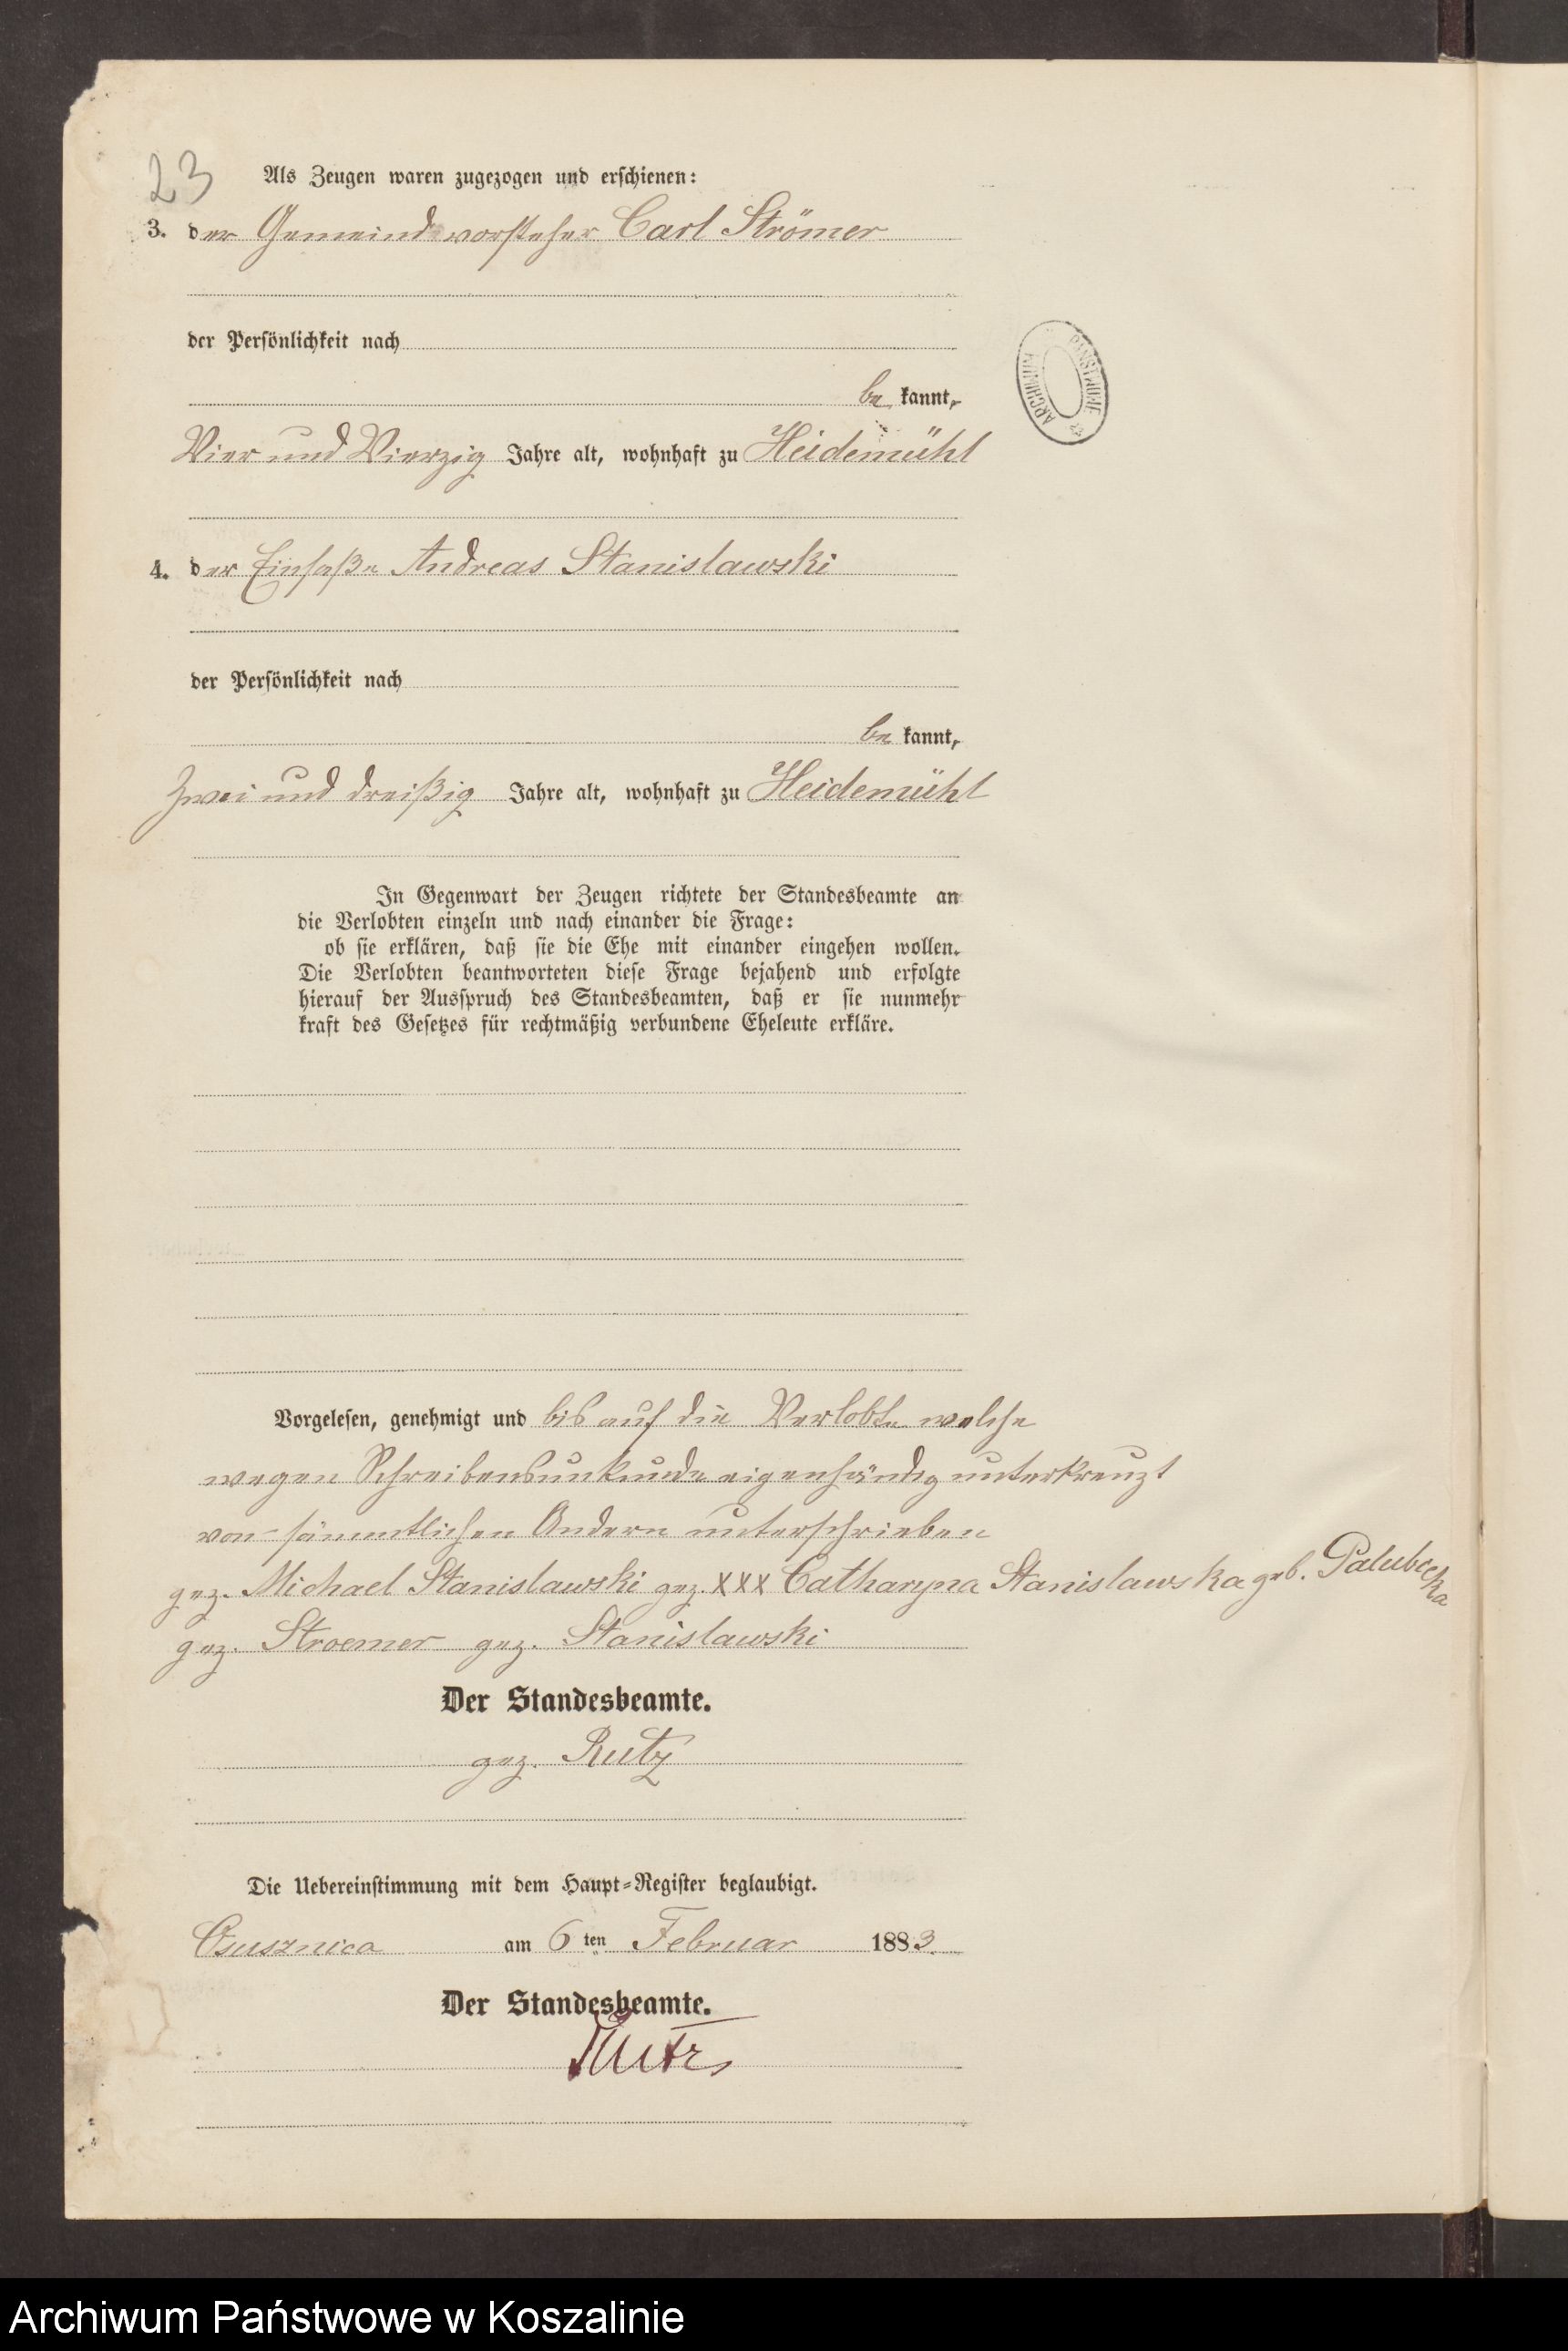 23
Als Zeugen waren zugezogen und erschienen:
3. der Gemeindevorsteher Carl Strömer
der Persönlichkeit nach
be kannt,
Vier und Vierzig Jahre alt, wohnhaft zu Heidemühl
4. der Einsaße Andreas Stanislawski
der Persönlichkeit nach
be kannt,
Zwei und dreißig Jahre alt, wohnhaft zu Heidemühl
In Gegenwart der Zeugen richtete der Standesbeamte an
die Verlobten einzeln und nach einander die Frage:
ob sie erklären, daß sie die Ehe mit einander eingehen wollen.
Die Verlobten beantworteten diese Frage bejahend und erfolgte
hierauf der Ausspruch des Standesbeamten, daß er sie nunmehr
kraft des Gesetzes für rechtmäßig verbundene Eheleute erkläre.
Vorgelesen, genehmigt und bis auf die Verlobte welche
wegen Schreibensunkunde eigenhändig unterkreuzt
von sämmtlichen Andern unterschrieben
gez. Michael Stanislawski gez. XXX Catharyna Stanislawska geb. Palubicka
gez. Stroemer gez. Stanislawski
Der Standesbeamte.
gez. Rutz
Die Uebereinstimmung mit dem Haupt-Register beglaubigt.
Osusznica am 6ten Februar 1883.
Der Standesbeamte.
Rutz
ARCHIWUM PAŃSTWOWE
Archiwum Państwowe w Koszalinie